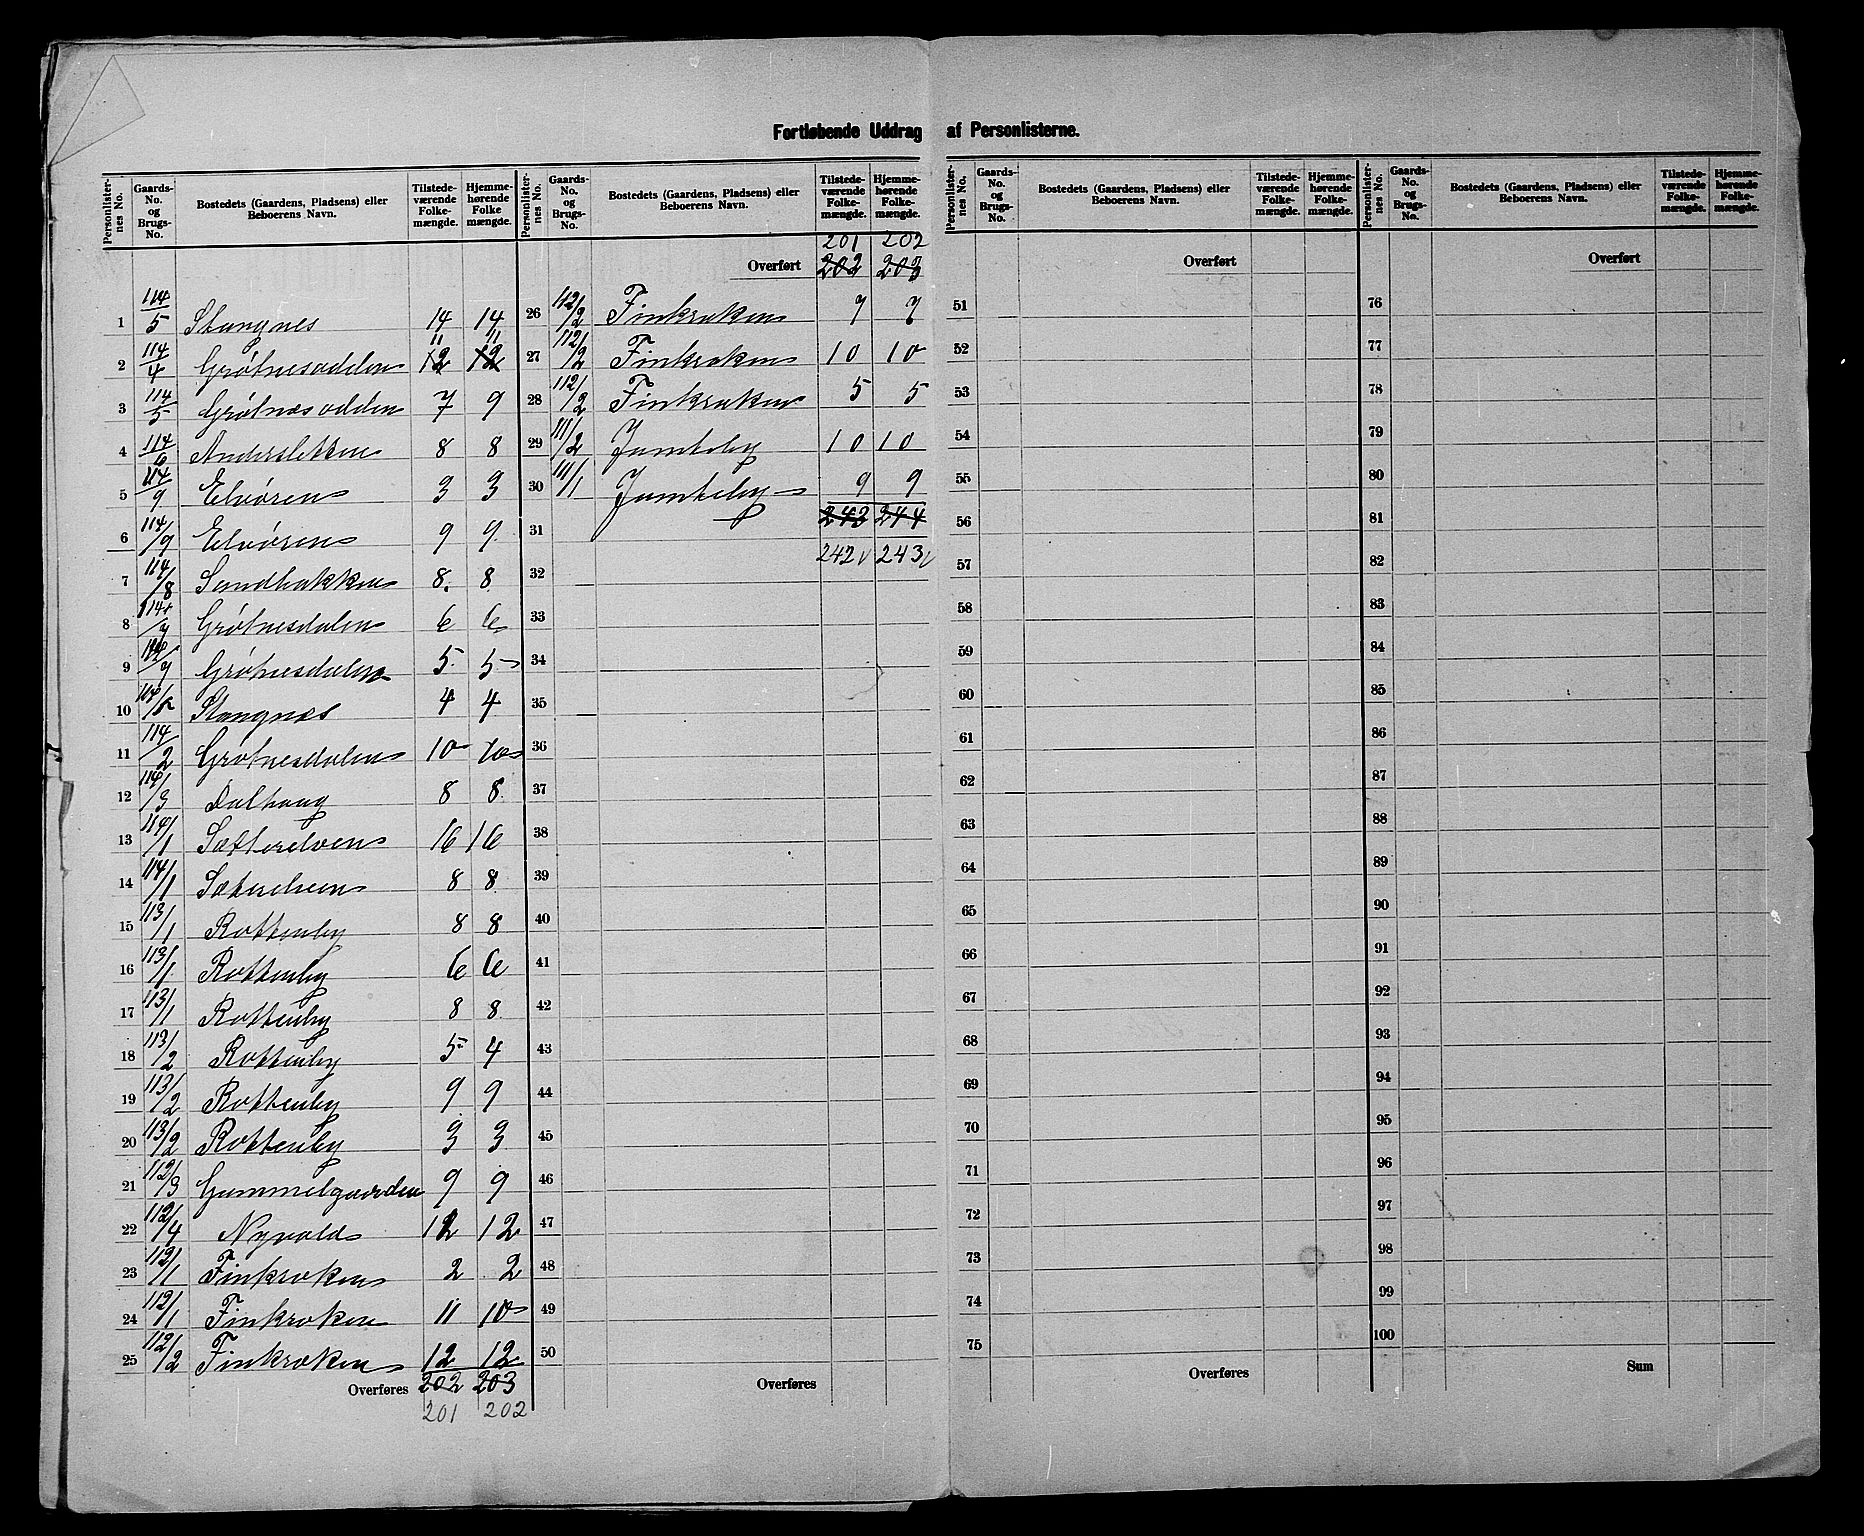 Fortløbende Uddrag af Personlisterne.
Personlister-nes No. Gaards-No. og Brugs-No. Bostedets (Gaardens, Pladsens) eller Beboerens Navn. Tilstede-værende Folke-mængde. Hjemme-hørende Folke mængde.
1 114/5 Stangnes 14 14
2 114/4 Grøtnesodden 11 12 11 12
3 114/5 Grøtnæsodden 7 9
4 114/6 Andersletten 8 8
5 114/9 Elvøren 3 3
6 114/9 Elvøren 9 9
7 114/8 Sandbakken 8 8
8 114/9 Grøtnesdalen 6 6
9 /9 Grøtnesdalen 5 5
10 114/5 Stangnæs 4 4
11 114/2 Grøtnesdalen 10 10
12 114/3 Dalhaug 8 8
13 114/1 Sætterelven 16 16
14 114/1 Sæterelven 8 8
15 113/1 Rottenby 8 8
16 113/1 Rottenby 6 6
17 113/1 Rottenby 8 8
18 113/2 Rottenby 5 4
19 113/2 Rottenby 9 9
20 113/2 Rottenby 3 3
21 112/3 Gammelgaarden 9 9
22 112/4 Nyvold 12 12
23 112/1 Finkroken 2 2
24 112/1 Finkroken 11 10
25 112/2 Finkroken 12 12
Overføres 202 203
201 202
Personlister-nes No. Gaards-No. og Brugs-No. Bostedets (Gaardens, Pladsens) eller Beboerens Navn. Tilstede-værende Folke-mængde. Hjemme-hørende Folke-mængde.
201 202
Overført 202 203
26 112/2 Finkroken 7 7
27 112/2 Finkroken 10 10
28 112/2 Finkroken 5 5
29 111/2 Jamteby 10 10
30 111/1 Jamteby 9 9
243 244
31
242 243
32
33
34
35
36
37
38
39
40
41
42
43
44
45
46
47
48
49
50
Overføres
Personlister-nes No. Gaards-No. og Brugs-No. Bostedets (Gaardens, Pladsens) eller Beboerens Navn. Tilstede-værende Folke-mængde. Hjemme-hørende Folke-mængde.
Overført
51
52
53
54
55
56
57
58
59
60
61
62
63
64
65
66
67
68
69
70
71
72
73
74
75
Overføres
Personlister-nes No. Gaards-No. og Brugs-No. Bostedets (Gaardens, Pladsens) eller Beboerens Navn. Tilstede-værende Folke-mængde. Hjemme-hørende Folke-mængde.
Overført
76
77
78
79
80
81
82
83
84
85
86
87
88
89
90
91
92
93
94
95
96
97
98
99
100
Sum